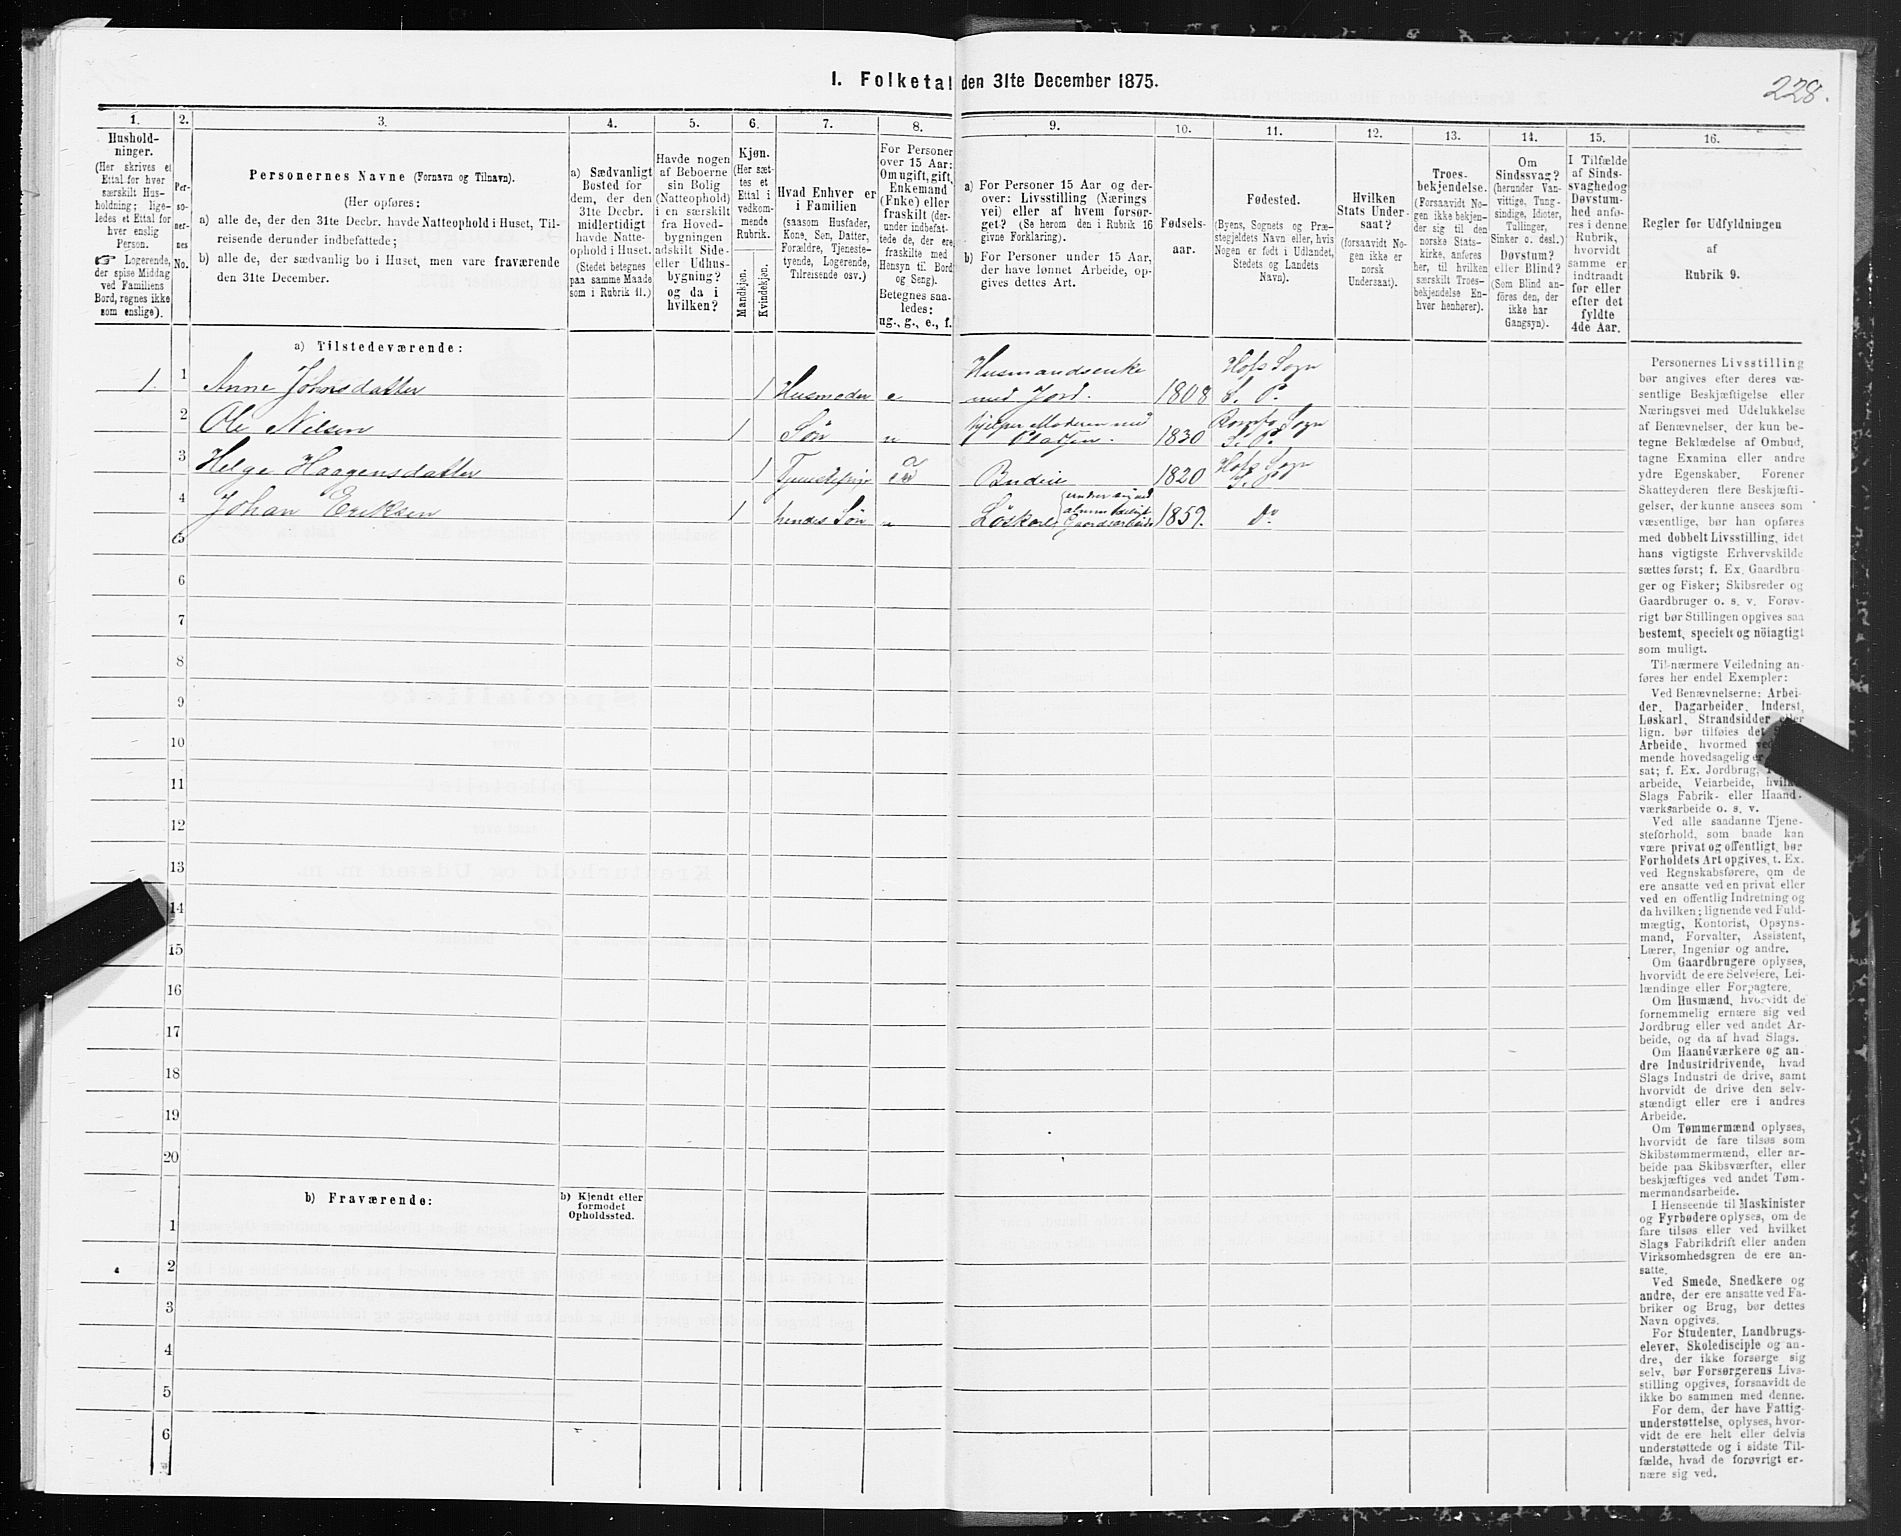 I. Folketal den 31te December 1875.
228.
1.
Hushold-
ninger.
(Her skrives et
Ettal for hver
særskilt Hus-
holdning; lige-
ledes et Ettal for
hver enslig
Person.
☞ Logerende,
der spise Middag
ved Familiens
Bord, regnes ikke
som enslige).
2.
Per-
so-
ner-
nes
No.
3.
Personernes Navne (Fornavn og Tilnavn).
(Her opføres:
a) alle de, der den 31te Decbr. havde Natteophold i Huset, Til-
reisende derunder indbefattede;
b) alle de, der sædvanlig bo i Huset, men vare fraværende
den 31te December.
4.
a) Sædvanligt
Bosted for
dem, der den
31te Decbr.
midlertidigt
havde Natte-
ophold i Huset.
(Stedet betegnes
paa samme Maade
som i Rubrik 11.)
5.
Havde nogen
af Beboerne
sin Bolig
(Natteophold)
i en særskilt
fra Hoved-
bygningen
adskilt Side-
eller Udhus-
bygning?
og da i
hvilken?
6.
Kjøn.
(Her sæt-
tes et
Ettal i
vedkom-
mende
Rubrik.
Mandkjøn.
Kvindekjøn.
7.
Hvad Enhver er
i Familien
(saasom Husfader,
Kone, Søn, Datter,
Forældre, Tjeneste-
tyende, Logerende,
Tilreisende osv.)
8.
For Personer
over 15 Aar:
Om ugift, gift,
Enkemand
(Enke) eller
fraskilt (der-
under indbefat-
tede de, der ere
fraskilte med
Hensyn til Bord
og Seng).
Betegnes saa-
ledes:
ug., g., e., f.
9.
a) For Personer 15 Aar og der-
over: Livsstilling (Nærings
vei) eller af hvem forsør-
get? (Se herom den i Rubrik 16
givne Forklaring).
b) For Personer under 15 Aar,
der have lønnet Arbeide, op-
gives dettes Art.
10.
Fødsels-
aar.
11.
Fødested.
(Byens, Sognets og Præ-
stegjeldets Navn eller, hvis
Nogen er født i Udlandet,
Stedets og Landets
Navn).
12.
Hvilken
Stats Under-
saat?
(forsaavidt No-
gen ikke er
norsk
Undersaat).
13.
Troes-
bekjendelse.
(Forsaavidt No-
gen ikke bekjen-
der sig til den
norske Stats-
kirke, anføres
her, til hvilken
særskilt Troes-
bekjendelse En-
hver henhører).
14.
Om
Sindssvag?
(herunder Van-
vittige, Tung-
sindige, Idioter,
Tullinger,
Sinker o. desl.)
Døvstum?
eller Blind?
(Som Blind an-
føres den, der
ikke har
Gangsyn).
15.
I Tilfælde
af Sinds-
svaghed og
Døvstum-
hed anfø-
res i denne
Rubrik,
hvorvidt
samme er
indtraadt
før eller
efter det
fyldte
4de Aar.
16.
Regler for Udfyldningen
af
Rubrik 9.
a) Tilstedeværende:
1. 1 Anne Johnsdatter 1 Husmoder e Husmandsenke
med Jord. 1808 Hofs Sogn
S. P.
2 Ole Nilsen 1 Søn u hjelper Moderen med
Pladsen. 1830 Sogn
S. P.
3 Helge Haagensdatter 1 Budeie 1820 Hofs Sogn
S. P.
4 Johan Eriksen 1 hendes Søn u Løskarl
Gaardsarbeide 1859. Do
5
6
7
8
9
10
11
12
13
14
15
16
17
18
19
20
b) Fraværende:
b) Kjendt eller
formodet
Opholdssted.
1
2
3
4
5
6
Personernes Livsstilling
bør angives efter deres væ-
sentlige Beskjæftigelse eller
Næringsvei med Udelukkelse
af Benævnelser, der kun be-
tegne Beklædelse af Ombud,
tagne Examina eller andre
ydre Egenskaber. Forener
Skatteyderen flere Beskjæfti-
gelser, der kunne ansees som
væsentlige, bør han opføres
med dobbelt Livsstilling, idet
hans vigtigste Erhvervskilde
sættes først; f. Ex. Gaardbru-
ger og Fisker; Skibsreder og
Gaardbruger o. s. v. Forøv-
rigt bør Stillingen opgives saa
bestemt, specielt og nöiagtigt
som muligt.
Til nærmere Veiledning an-
føres her endel Exempler:
Ved Benævnelserne: Arbei-
der, Dagarbeider, Inderst,
Løskarl, Strandsidder eller
lign. bør tilføies det
Arbeide, hvormed
mende hovedsagelig er
sat; f. Ex. Jordbrug,
arbeide, Veiarbeide, hvilke
Slags Fabrik- eller Haand-
værksarbeide o. s. v.
Ved alle saadanne Tjene-
steforhold, som baade kan
være privat og offentligt, bør
Forholdets Art opgives, t. Ex.
ved Regnskabsførere, om de
ere ansatte ved en privat eller
ved en offentlig Indretning og
da hvilken; lignende ved Fuld-
mægtig, Kontorist, Opsyns-
mand, Forvalter, Assistent,
Lærer, Ingeniør og andre.
Om Gaardbrugere oplyses,
hvorvidt de ere Selveiere, Lei-
lændinge eller Forpagtere.
Om Husmænd, hvorvidt de
fornemmelig ernære sig ved
Jordbrug eller ved andet Ar-
beide, og da af hvad Slags.
Om Haandværkere og an-
dre Industridrivende, hvad
Slags Industri de drive, samt
hvorvidt de drive den selv-
stændigt eller ere i andres
Arbeide.
Om Tømmermænd oplyses,
hvorvidt de fare tilsøs som
Skibstømmermænd, eller ar-
beide paa Skibsværfter, eller
beskjæftiges ved andet Tøm-
mermandsarbeide.
I Henseende til Maskinister
og Fyrbødere oplyses, om de
fare tilsøs eller ved hvilket
Slags Fabrikdrift eller anden
Virksomhedsgren de ere an-
satte.
Ved Smede, Snedkere og
andre, der ere ansatte ved Fa-
briker og Brug, bør dettes
Navn opgives.
For Studenter, Landbrugs-
elever, Skoledisciple og an-
dre, der ikke forsørge sig
selv, bør Forsørgerens Livs-
stilling opgives, forsaavidt de
ikke bo sammen med denne.
For dem, der have Fattig-
understøttelse, oplyses, hvor-
vidt de ere helt eller delvis
understøttede og i sidste Til-
fælde, hvad de forøvrigt er-
nære sig ved.